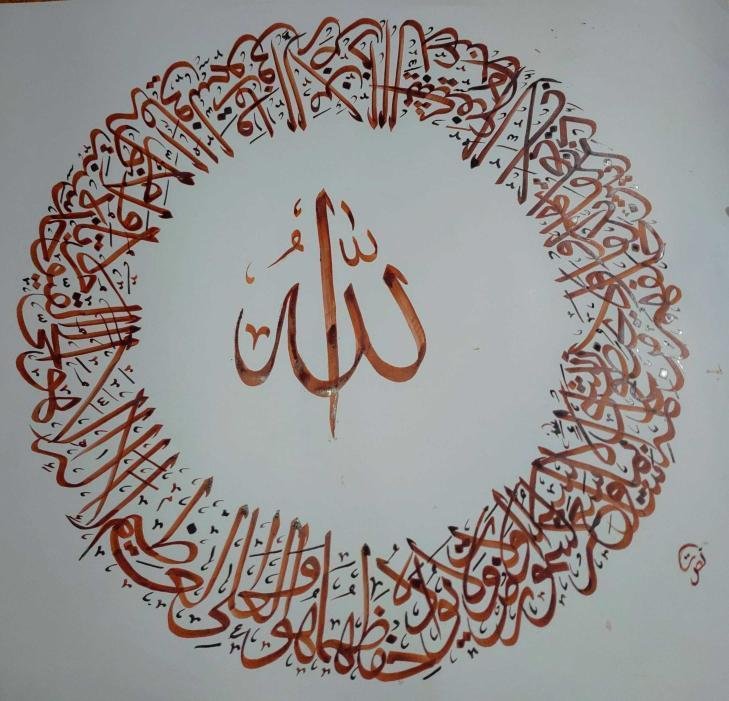 الله
الله لا اله الا هو الحي القيوم لا تأخذه سنة ولا نوم له ما في السموت وما في الارض من ذا الذي يشفع عنده الا باذنه يعلم ما بين ايديهم وما خلفهم ولا يحيطون بشيء من علمه الا بما شاء وسع كرسيه السموت والارض ولا يؤده حفظهما وهو العلي العظيم